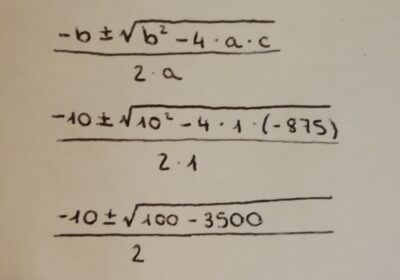 -b ± √b² - 4 · a · c
2 · a
-10 ± √10² - 4 · 1 · (-875)
2 · 1
-10 ± √100 - 3500
2